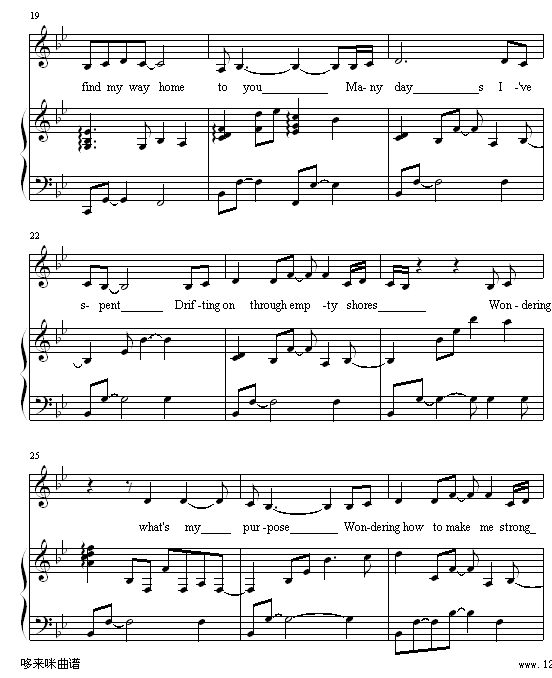 19
find my way home to you__________ Ma-ny day__________s I -'ve
22
s- pent______ Drif-ting on through emp -ty shores_______ Wondering
25
what's my_____ pur-pose_______ Wondering how to make me strong_
哆来咪曲谱 www.12